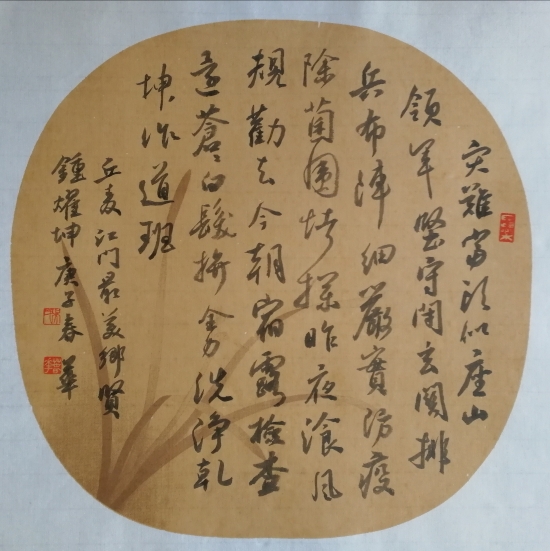 灾難當頭似座山
領軍堅守閉玄關排
兵布陣細嚴實防疫
除菌圍堵攔昨夜飡風
規勸去今朝宿露檢查
還蒼々白髮拚全力洗淨乾
坤作道班
丘麦江門最美鄉賢
鍾燿坤庚子春華